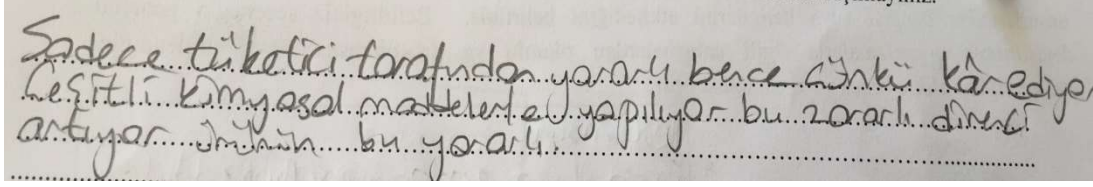 Sadece tüketici tarafından yararlı bence çünkü kâr ediyor
Çeşitli kimyasal maddelerle yapılıyor bu zararlı direnci
artıyor ürünün bu yararlı